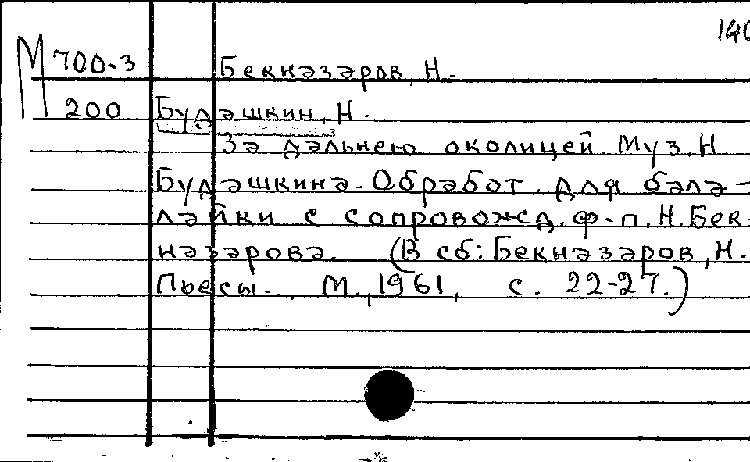 140
М 700-3 Бекназаров, Н.
200 Будашкин, Н.
За дальнею околицей. Муз. Н
Будашкина. Обработ. для бала-
лайки с сопровожд. ф-п. Н. Бек-
назарова. (В сб: Бекназаров, Н.
Пьесы. М., 1961, с. 22-27.)